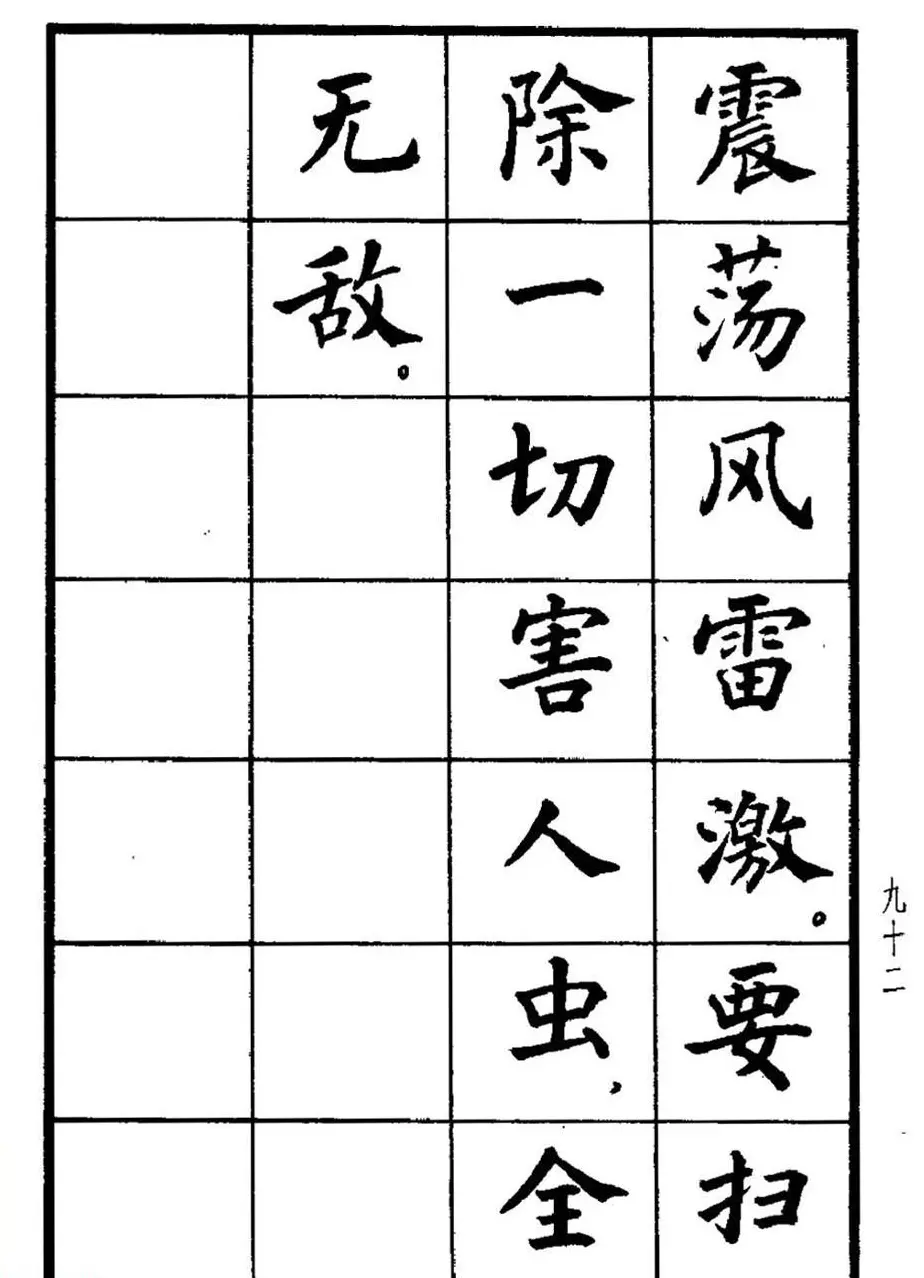 震荡风雷激。要扫
除一切害人虫，全
无敌。
九十二